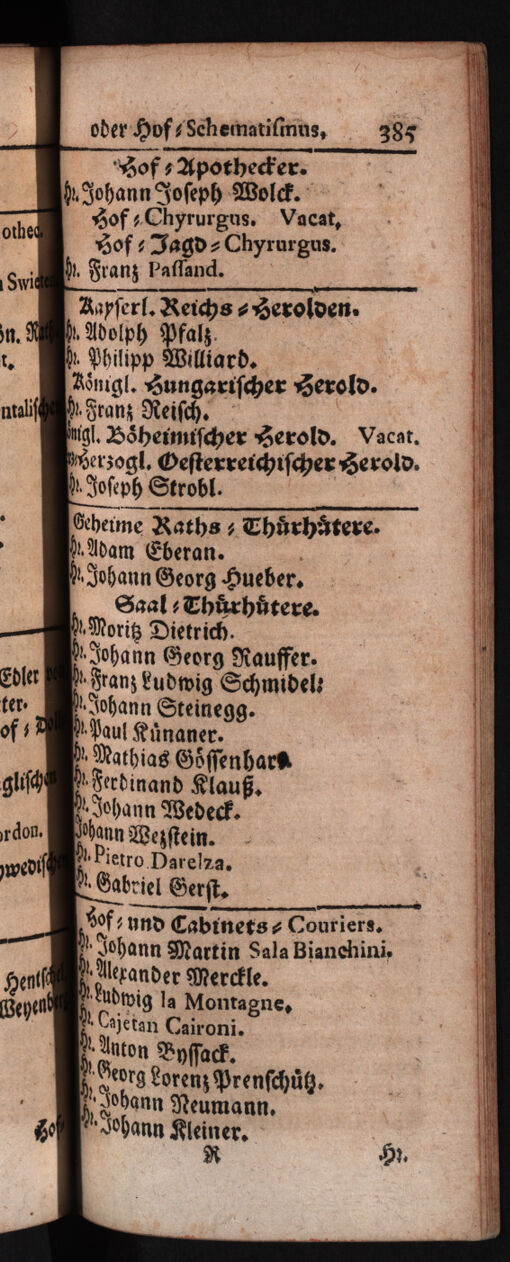 oder Hof-Schematismus, 385
Hof-Apothecker.
Hr. Johann Joseph Wolck.
Hof-Chyrurgus. Vacat,
Hof-Jagd-Chyrurgus.
Hr. Franz Passand.
Kayserl. Reichs-Herolden.
Hr. Adolph Pfalz.
Hr. Philipp Williard.
Königl. Hungarischer Herold.
Hr. Franz Reisch.
önigl. Böheimischer Herold. Vacat.
Herzogl. Oesterreichischer Herold.
Hr. Joseph Strobl.
Geheime Raths-Thürhütere.
Hr. Adam Eberan.
Hr. Johann Georg Hueber.
Saal-Thürhütere.
Hr. Moritz Dietrich.
Hr. Johann Georg Rauffer.
Hr. Franz Ludwig Schmidel:
Hr. Johann Steinegg.
Hr. Paul Künaner.
Hr. Mathias Gössenhar
Hr. Ferdinand Klauß.
Hr. Johann Wedeck.
Johann Wezstein.
Hr. Pietro Darelza.
Hr. Gabriel Gerst.
Hof- und Cabinets-Couriers.
Hr. Johann Martin Sala Bianchini.
Hr. Alexander Merckle.
Hr. Ludwig la Montagne.
Hr. Cajetan Caironi.
Hr. Anton Byssack.
Hr. Georg Lorenz Prenschütz.
Hr. Johann Neumann.
Hr. Johann Kleiner.
R Hr.